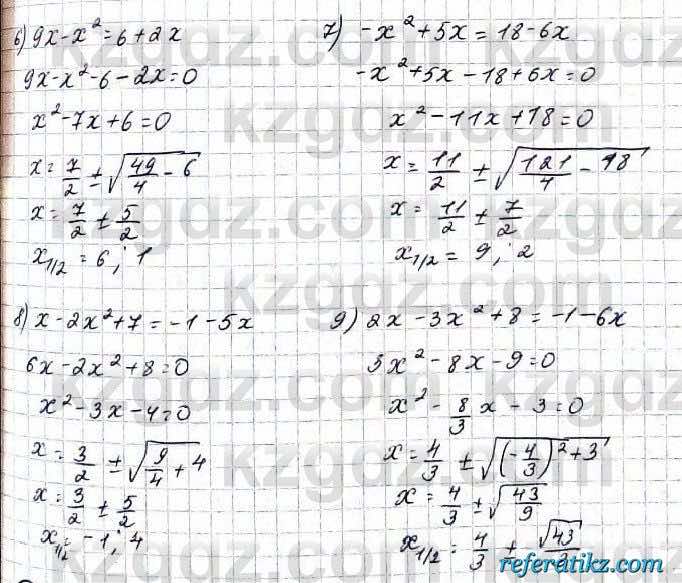 6) 9x-x²=6+2x
9x-x²-6-2x=0
x²-7x+6=0
x=7/2±√(49/4-6)
x=7/2±5/2
x1/2=6; 1
7) -x²+5x=18-6x
-x²+5x-18+6x=0
x²-11x+18=0
x=11/2±√(121/4-18)
x=11/2±7/2
x1/2=9; 2
8) x-2x²+7=-1-5x
6x-2x²+8=0
x²-3x-4=0
x=3/2±√(9/4+4)
x=3/2±5/2
x1/2=-1; 4
9) 2x-3x²+8=-1-6x
3x²-8x-9=0
x²-8/3x-3=0
x=4/3±√((-4/3)²+3)
x=4/3±√(43/9)
x1/2=4/3±√43/3
kzgdz.com
referatikz.com